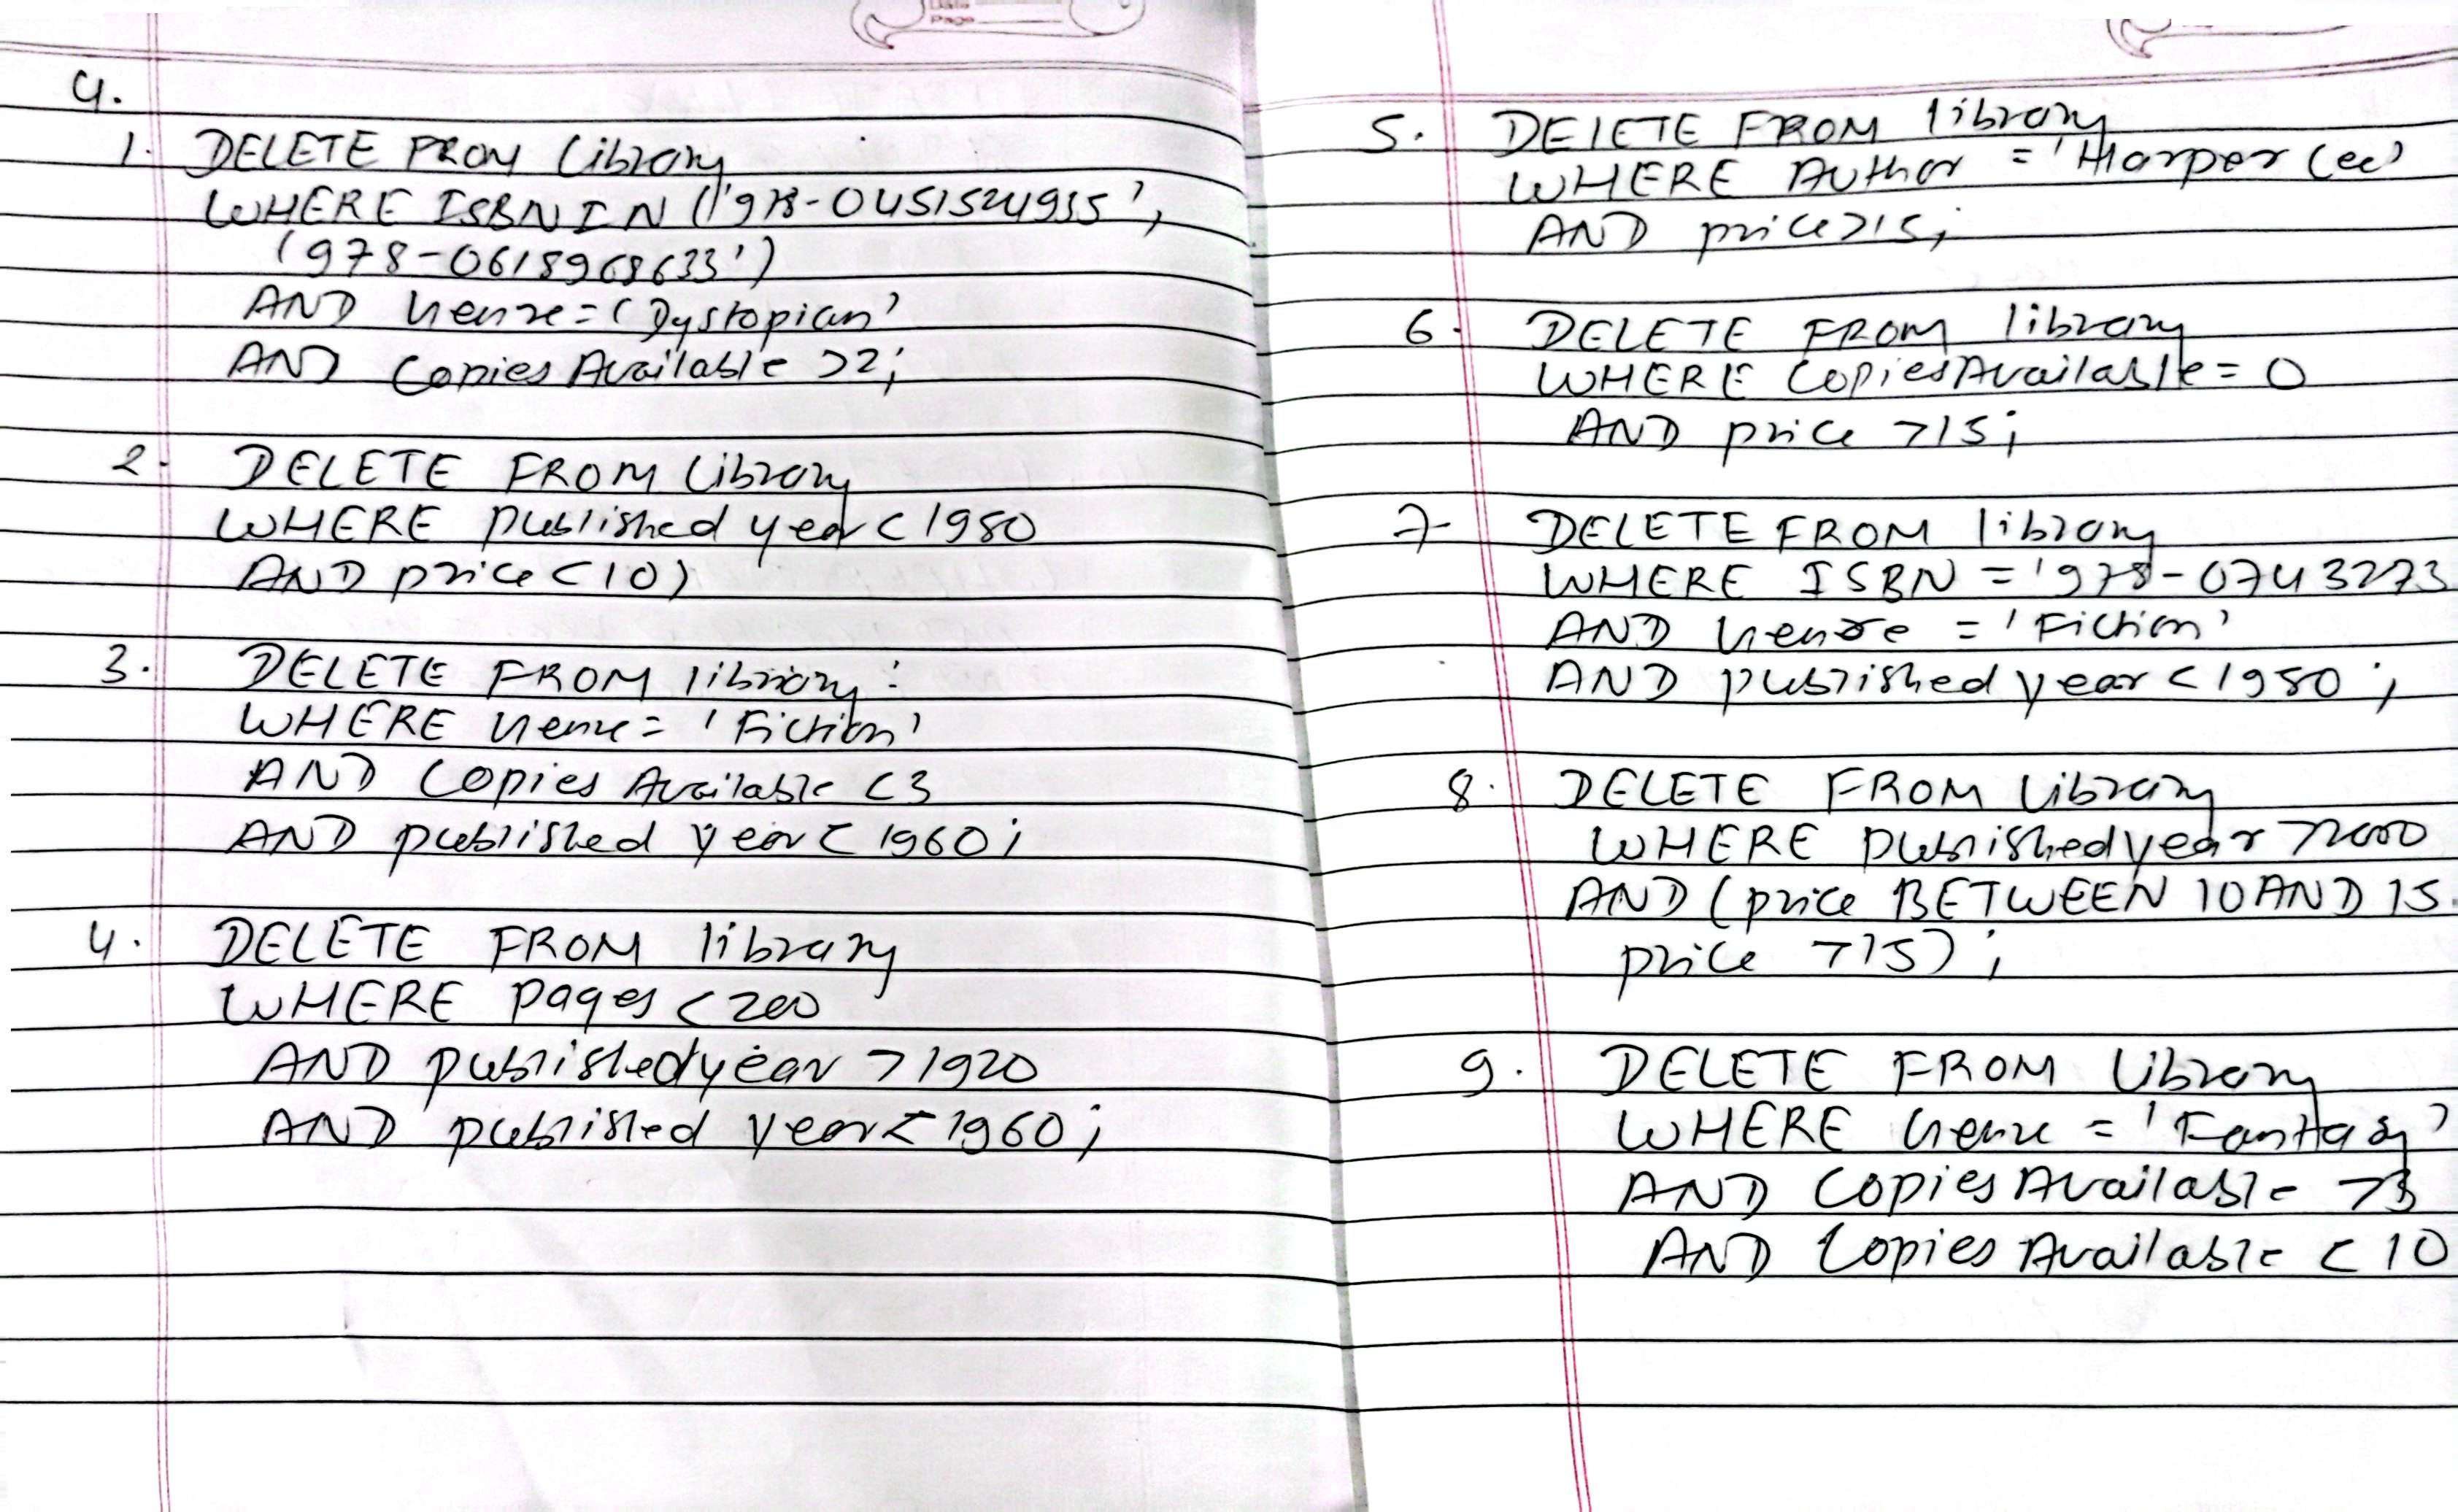 Date
Page
4.
1. DELETE FROM Library
WHERE ISBN IN ('978-0451524935',
'978-0618968633')
AND Genre = 'Dystopian'
AND Copies Available >2;
2. DELETE FROM Library
WHERE published year < 1950
AND price < 10;
3. DELETE FROM library
WHERE Genre = 'Fiction'
AND Copies Available <3
AND published year < 1960;
4. DELETE FROM library
WHERE pages < 200
AND published year > 1920
AND published year < 1960;
5. DELETE FROM library
WHERE Author = 'Harper Lee'
AND price >15;
6. DELETE FROM library
WHERE Copies Available = 0
AND price >15;
7. DELETE FROM library
WHERE ISBN = '978-0743273
AND Genre = 'Fiction'
AND published year < 1950;
8. DELETE FROM Library
WHERE published year >2000
AND (price BETWEEN 10 AND 15
price >15);
9. DELETE FROM Library
WHERE Genre = 'Fantasy'
AND Copies Available >3
AND Copies Available < 10